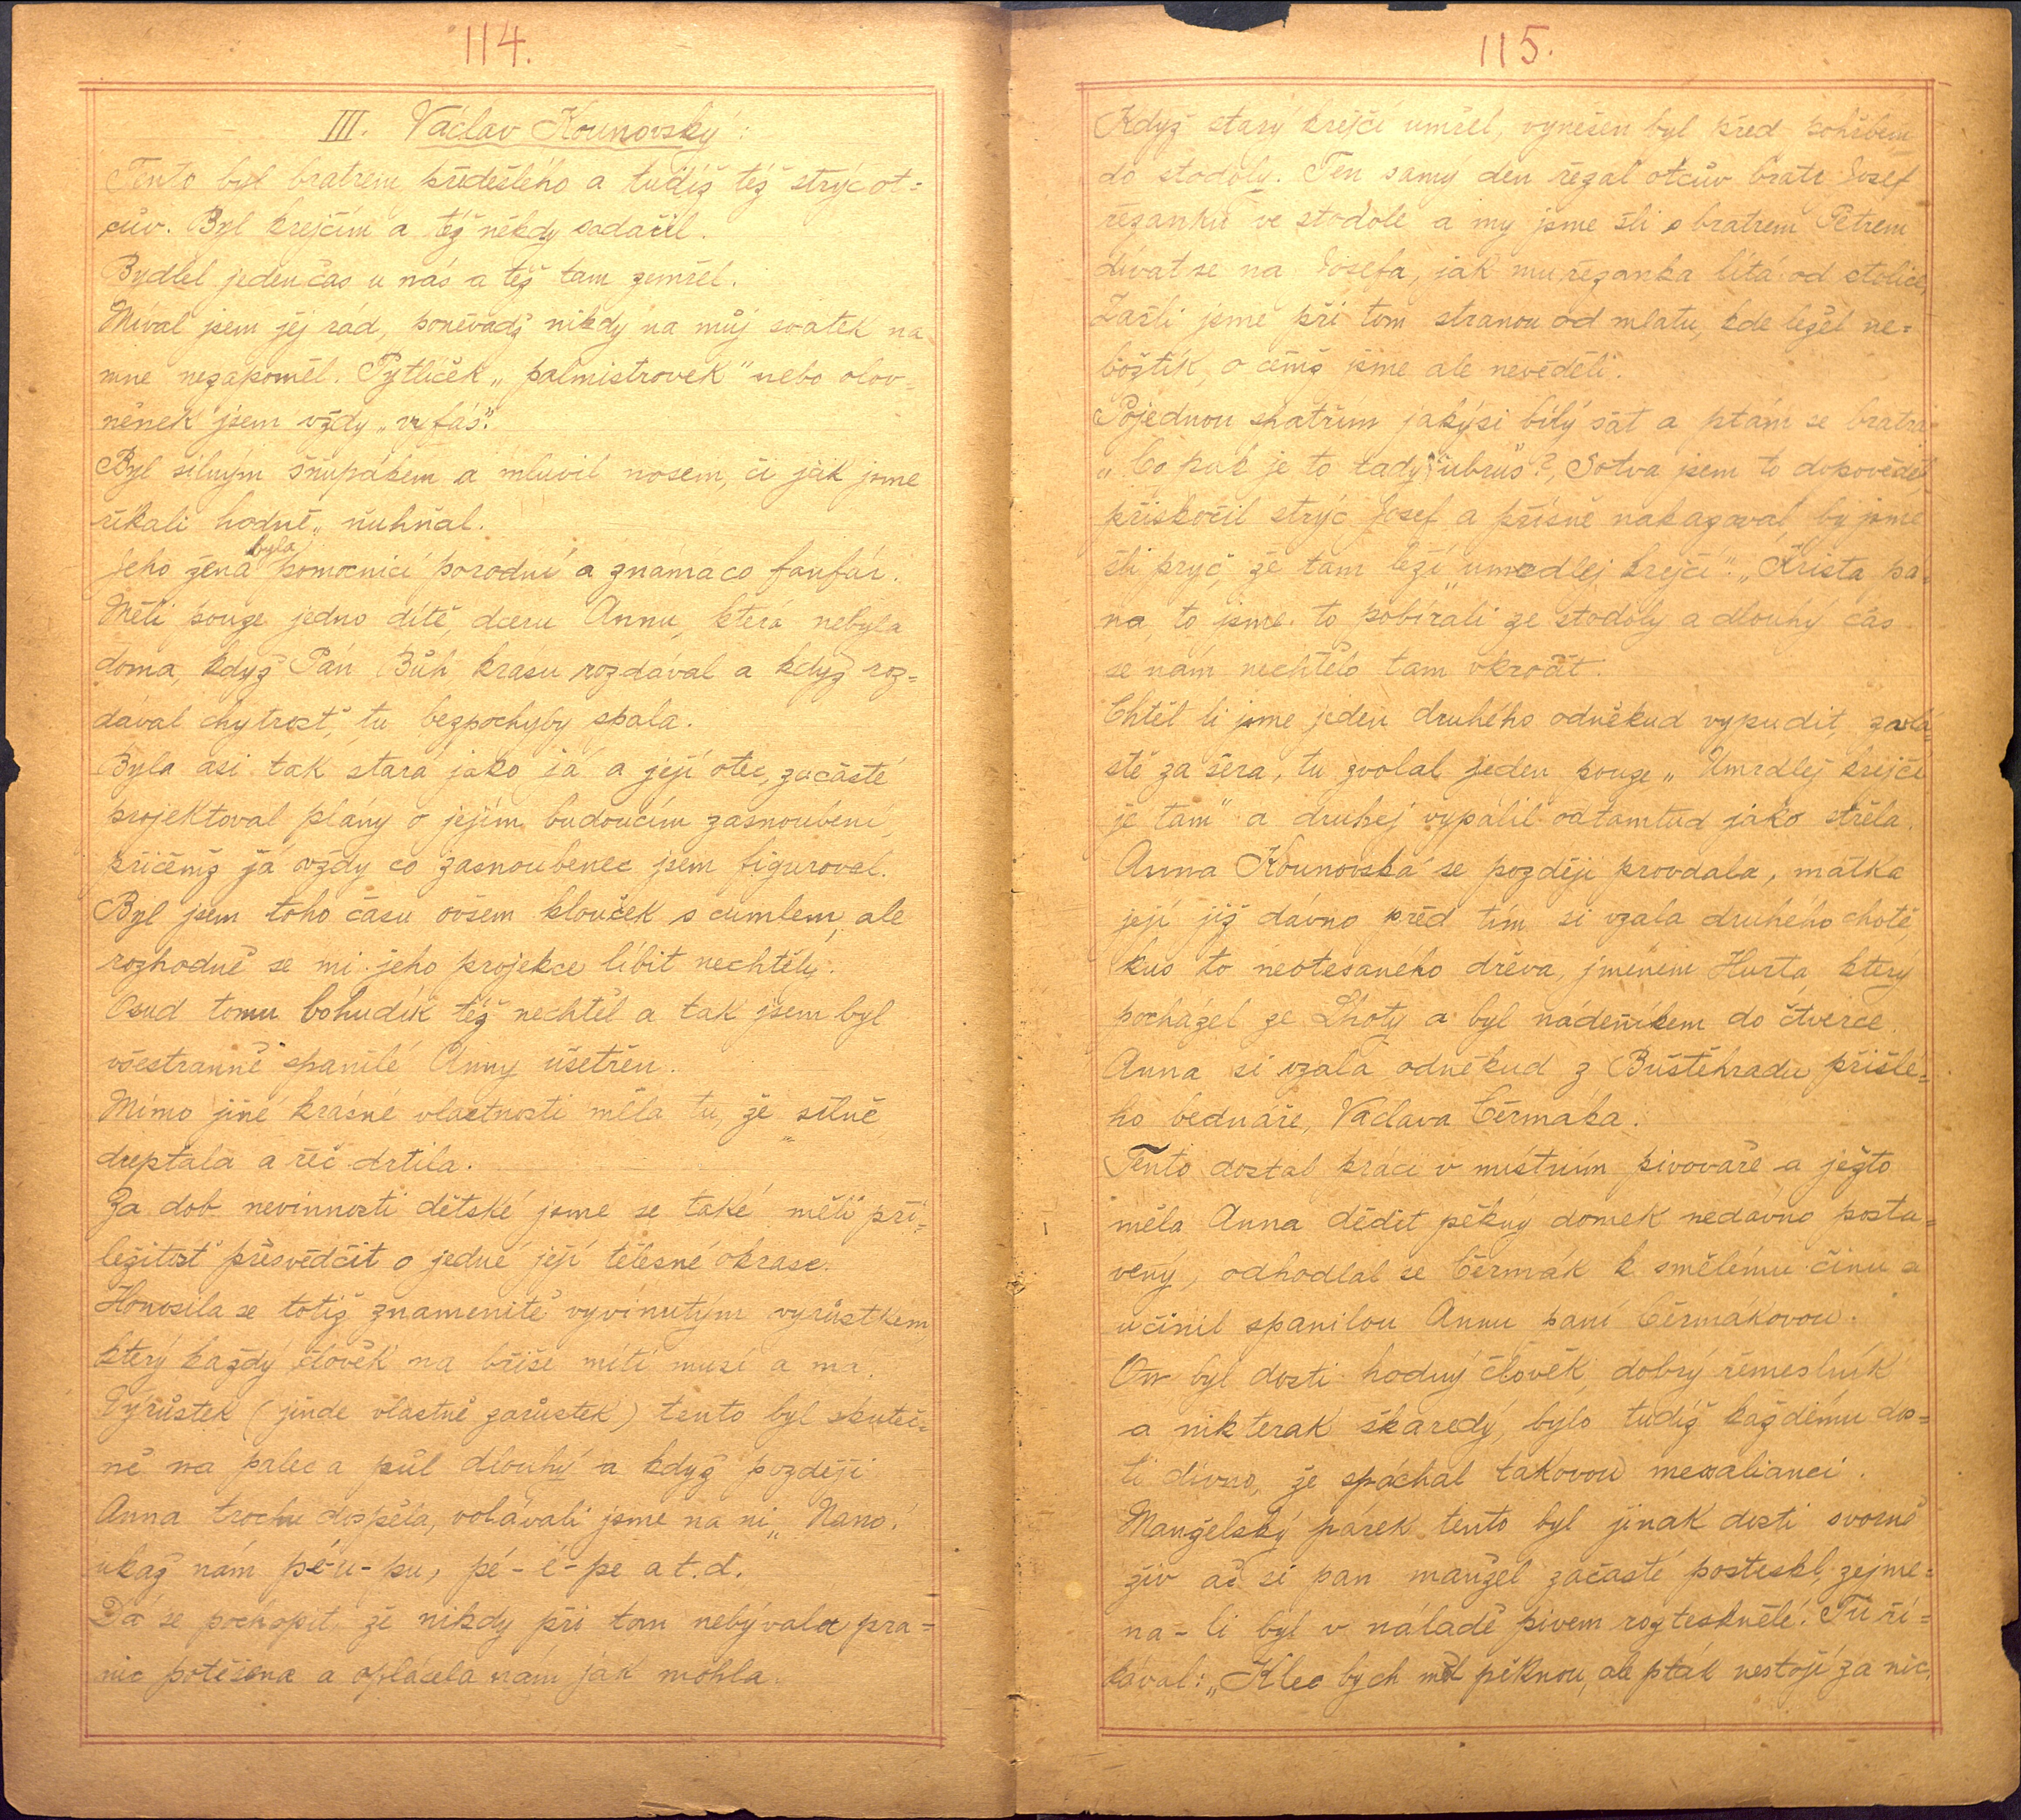 114.
III. Václav Kounovský:
Tento byl bratrem předešlého a tudíž též strýc ot=
cův. Byl krejčím a též někdy sadařil.
Bydlel jeden čas u nás a též tam zemřel.
Míval jsem jej rád, poněvadž nikdy na můj svátek na
mne nezapoměl. Pytlíček „palmistrovek" nebo olov-
něnek jsem vždy „vyfás".
Byl silným šňupákem a mluvil nosem, či jak jsme
říkali hodně „ňuhňal.
Jeho žena byla pomocnicí porodní a známa co fanfár.
Měli pouze jedno dítě, dceru Annu, která nebyla
doma, když Pán Bůh krásu rozdával a když roz=
dával chytrost, tu bezpochyby spala.
Byla asi tak stará jako já a její otec, začasté
projektoval plány o jejím budoucím zasnoubení,
přičemž já vždy co zasnoubenec jsem figuroval.
Byl jsem toho času ovšem klouček s cumlem, ale
rozhodně se mi jeho projekce líbit nechtěly.
Osud tomu bohudík též nechtěl a tak jsem byl
všestranně spanilé Anny ušetřen.
Mimo jiné krásné vlastnosti měla tu, že „silně
dreptala a řeč drtila.
Za dob nevinnosti dětské jsme se také měli pří=
ležitost přesvědčit o jedné její tělesné okrase.
Honosila se totiž znamenitě vyvinutým vyrůstkem,
který každý člověk na břiše míti musí a má.
Výrůstek (jinde vlastně zarůstek) tento byl skuteč=
ně na palec a půl dlouhý a když později
Anna trochu dospěla, volávali jsme na ni „Nano,
ukaž nám pé-u-pu, pé-é-pe a t.d.
Dá se pochopit, že nikdy při tom nebývala pra=
nic potěšena a oplácela nám jak mohla.
115.
Když starý krejčí umřel, vynešen byl před pohřbem
do stodoly. Ten samý den řezal otcův bratr Josef
řezanku ve stodole a my jsme šli s bratrem Petrem
dívat se na Josefa, jak mu řezanka lítá od stolice,
Zašli jsme při tom stranou od mlatu, kde ležel ne=
božtík, o čemž jsme ale nevěděli.
Pojednou spatřím jakýsi bílý šat a ptám se bratra
„Co pak je to tady ubrus?, Sotva jsem to dopověděl
přiskočil strýc Josef a přísně nakazoval by jsme
šli pryč, že tam leží „umrdlej krejčí". „Krista pá-
na, to jsme to pobírali ze stodoly a dlouhý čas
se nám nechtělo tam vkročit.
Chtěl li jsme jeden druhého odněkud vypudit, zvlá
ště za šera, tu zvolal jeden pouze „Umrdlej krejčí
je tam" a druhej vypálil odtamtud jako střela.
Anna Kounovská se později provdala, matka
její již dávno před tím si vzala druhého chotě,
kus to neotesaného dřeva, jménem Hurta, který
pocházel ze Lhoty a byl nádeníkem do čtverce.
Anna si vzala odněkud z Buštěhradu přišlé=
ho bednáře, Václava Čermáka.
Tento dostal práci v místním pivovaře a ježto
měla Anna dědit pěkný domek nedávno posta=
vený, odhodlal se Čermák k smělému činu a
učinil spanilou Annu paní Čermákovou.
On byl dosti hodný člověk, dobrý řemeslník
a nikterak škaredý, bylo tudíž každému dos=
ti divno, že spáchal takovou mesalianci.
Manželský párek tento byl jinak dosti svorně
živ ač si pan manžel začasté postesknl, zejmé=
na-li byl v náladě pivem rozteskněle. Tu ří=
kával: „Klec bych měl pěknou, ale pták nestojí za nic,